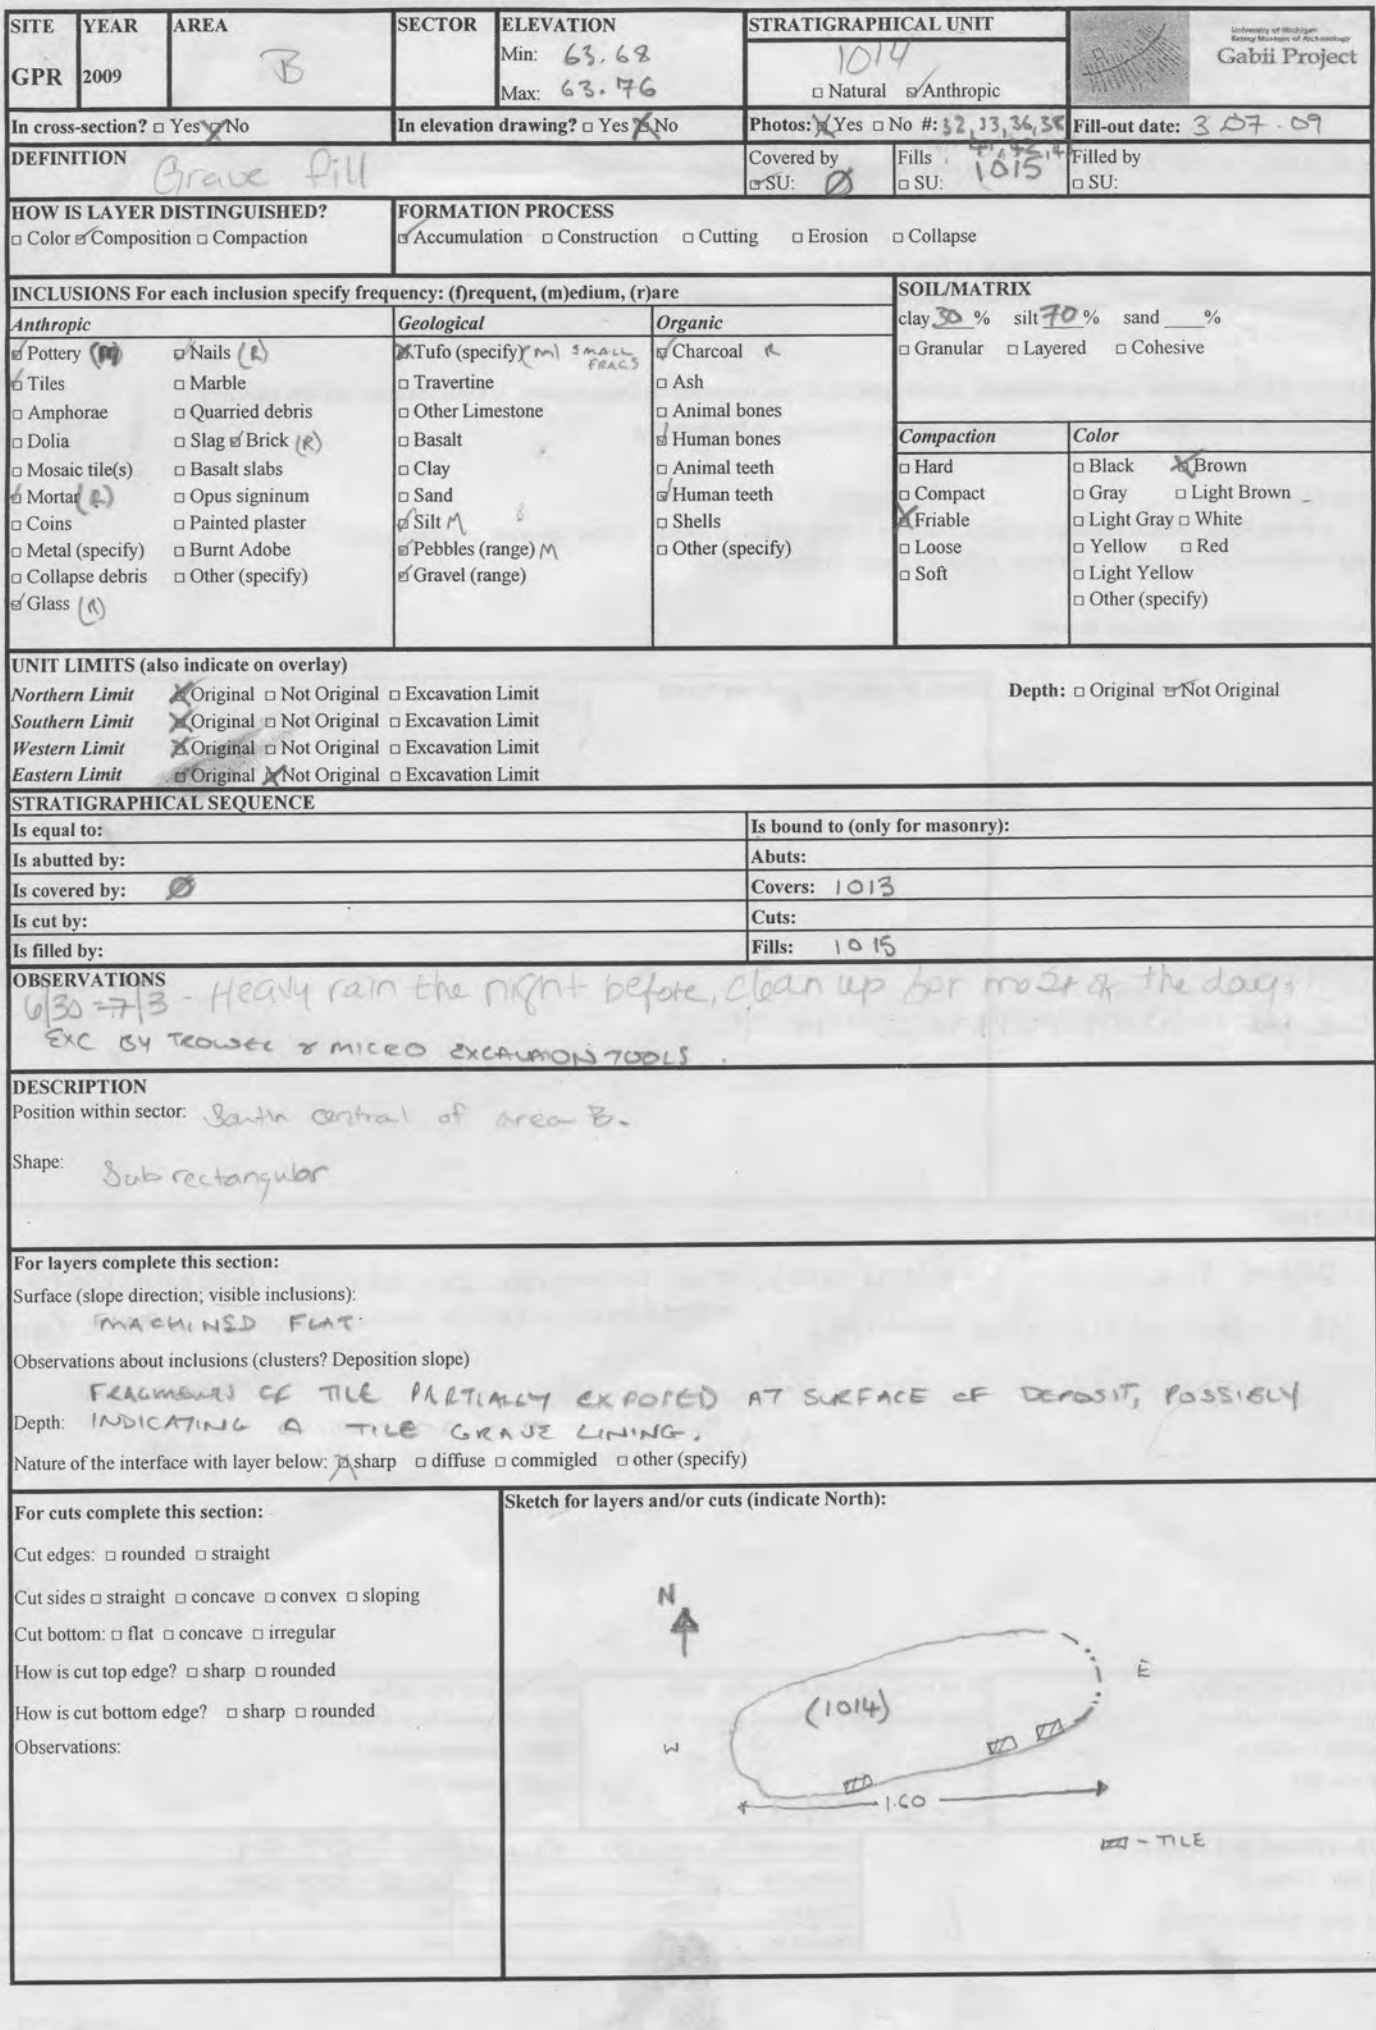 SITE YEAR AREA SECTOR ELEVATION STRATIGRAPHICAL UNIT
GPR 2009 B Min: 63.68 1014
Max: 63.76 □ Natural ☑ Anthropic
University of Michigan
Kelsey Museum of Archaeology
Gabii Project
In cross-section? □ Yes ☒ No In elevation drawing? □ Yes ☒ No Photos: ☒ Yes □ No #: 32, 33, 36, 38 Fill-out date: 3.07.09
DEFINITION Grave fill
Covered by ☑ SU: Ø Fills □ SU: 1015 Filled by □ SU:
HOW IS LAYER DISTINGUISHED?
□ Color ☑ Composition □ Compaction
FORMATION PROCESS
☑ Accumulation □ Construction □ Cutting □ Erosion □ Collapse
INCLUSIONS For each inclusion specify frequency: (f)requent, (m)edium, (r)are
Anthropic
☑ Pottery (M) ☑ Nails (R)
☑ Tiles □ Marble
□ Amphorae □ Quarried debris
□ Dolia □ Slag ☑ Brick (R)
□ Mosaic tile(s) □ Basalt slabs
☑ Mortar (R) □ Opus signinum
□ Coins □ Painted plaster
□ Metal (specify) □ Burnt Adobe
□ Collapse debris □ Other (specify)
☑ Glass (R)
Geological
☒ Tufo (specify) (m) SMALL FRAGS
□ Travertine
□ Other Limestone
□ Basalt
□ Clay
□ Sand
☑ Silt M
☑ Pebbles (range) M
☑ Gravel (range)
Organic
☑ Charcoal R
□ Ash
□ Animal bones
☑ Human bones
□ Animal teeth
☑ Human teeth
□ Shells
□ Other (specify)
SOIL/MATRIX
clay 30 % silt 70 % sand ____%
□ Granular □ Layered □ Cohesive
Compaction
□ Hard
□ Compact
☒ Friable
□ Loose
□ Soft
Color
□ Black ☒ Brown
□ Gray □ Light Brown
□ Light Gray □ White
□ Yellow □ Red
□ Light Yellow
□ Other (specify)
UNIT LIMITS (also indicate on overlay)
Northern Limit ☒ Original □ Not Original □ Excavation Limit Depth: □ Original ☑ Not Original
Southern Limit ☒ Original □ Not Original □ Excavation Limit
Western Limit ☒ Original □ Not Original □ Excavation Limit
Eastern Limit □ Original ☒ Not Original □ Excavation Limit
STRATIGRAPHICAL SEQUENCE
Is equal to: Is bound to (only for masonry):
Is abutted by: Abuts:
Is covered by: Ø Covers: 1013
Is cut by: Cuts:
Is filled by: Fills: 1015
OBSERVATIONS
6/30 - 7/3 - Heavy rain the night before, clean up for most of the day.
EXC BY TROWEL & MICRO EXCAVATION TOOLS.
DESCRIPTION
Position within sector: South central of area B.
Shape: Sub rectangular
For layers complete this section:
Surface (slope direction; visible inclusions):
MACHINED FLAT.
Observations about inclusions (clusters? Deposition slope)
FRAGMENTS OF TILE PARTIALLY EXPOSED AT SURFACE OF DEPOSIT, POSSIBLY
Depth: INDICATING A TILE GRAVE LINING.
Nature of the interface with layer below: ☒ sharp □ diffuse □ commigled □ other (specify)
For cuts complete this section:
Cut edges: □ rounded □ straight
Cut sides □ straight □ concave □ convex □ sloping
Cut bottom: □ flat □ concave □ irregular
How is cut top edge? □ sharp □ rounded
How is cut bottom edge? □ sharp □ rounded
Observations:
Sketch for layers and/or cuts (indicate North):
N
E
(1014)
W
1.60
- TILE